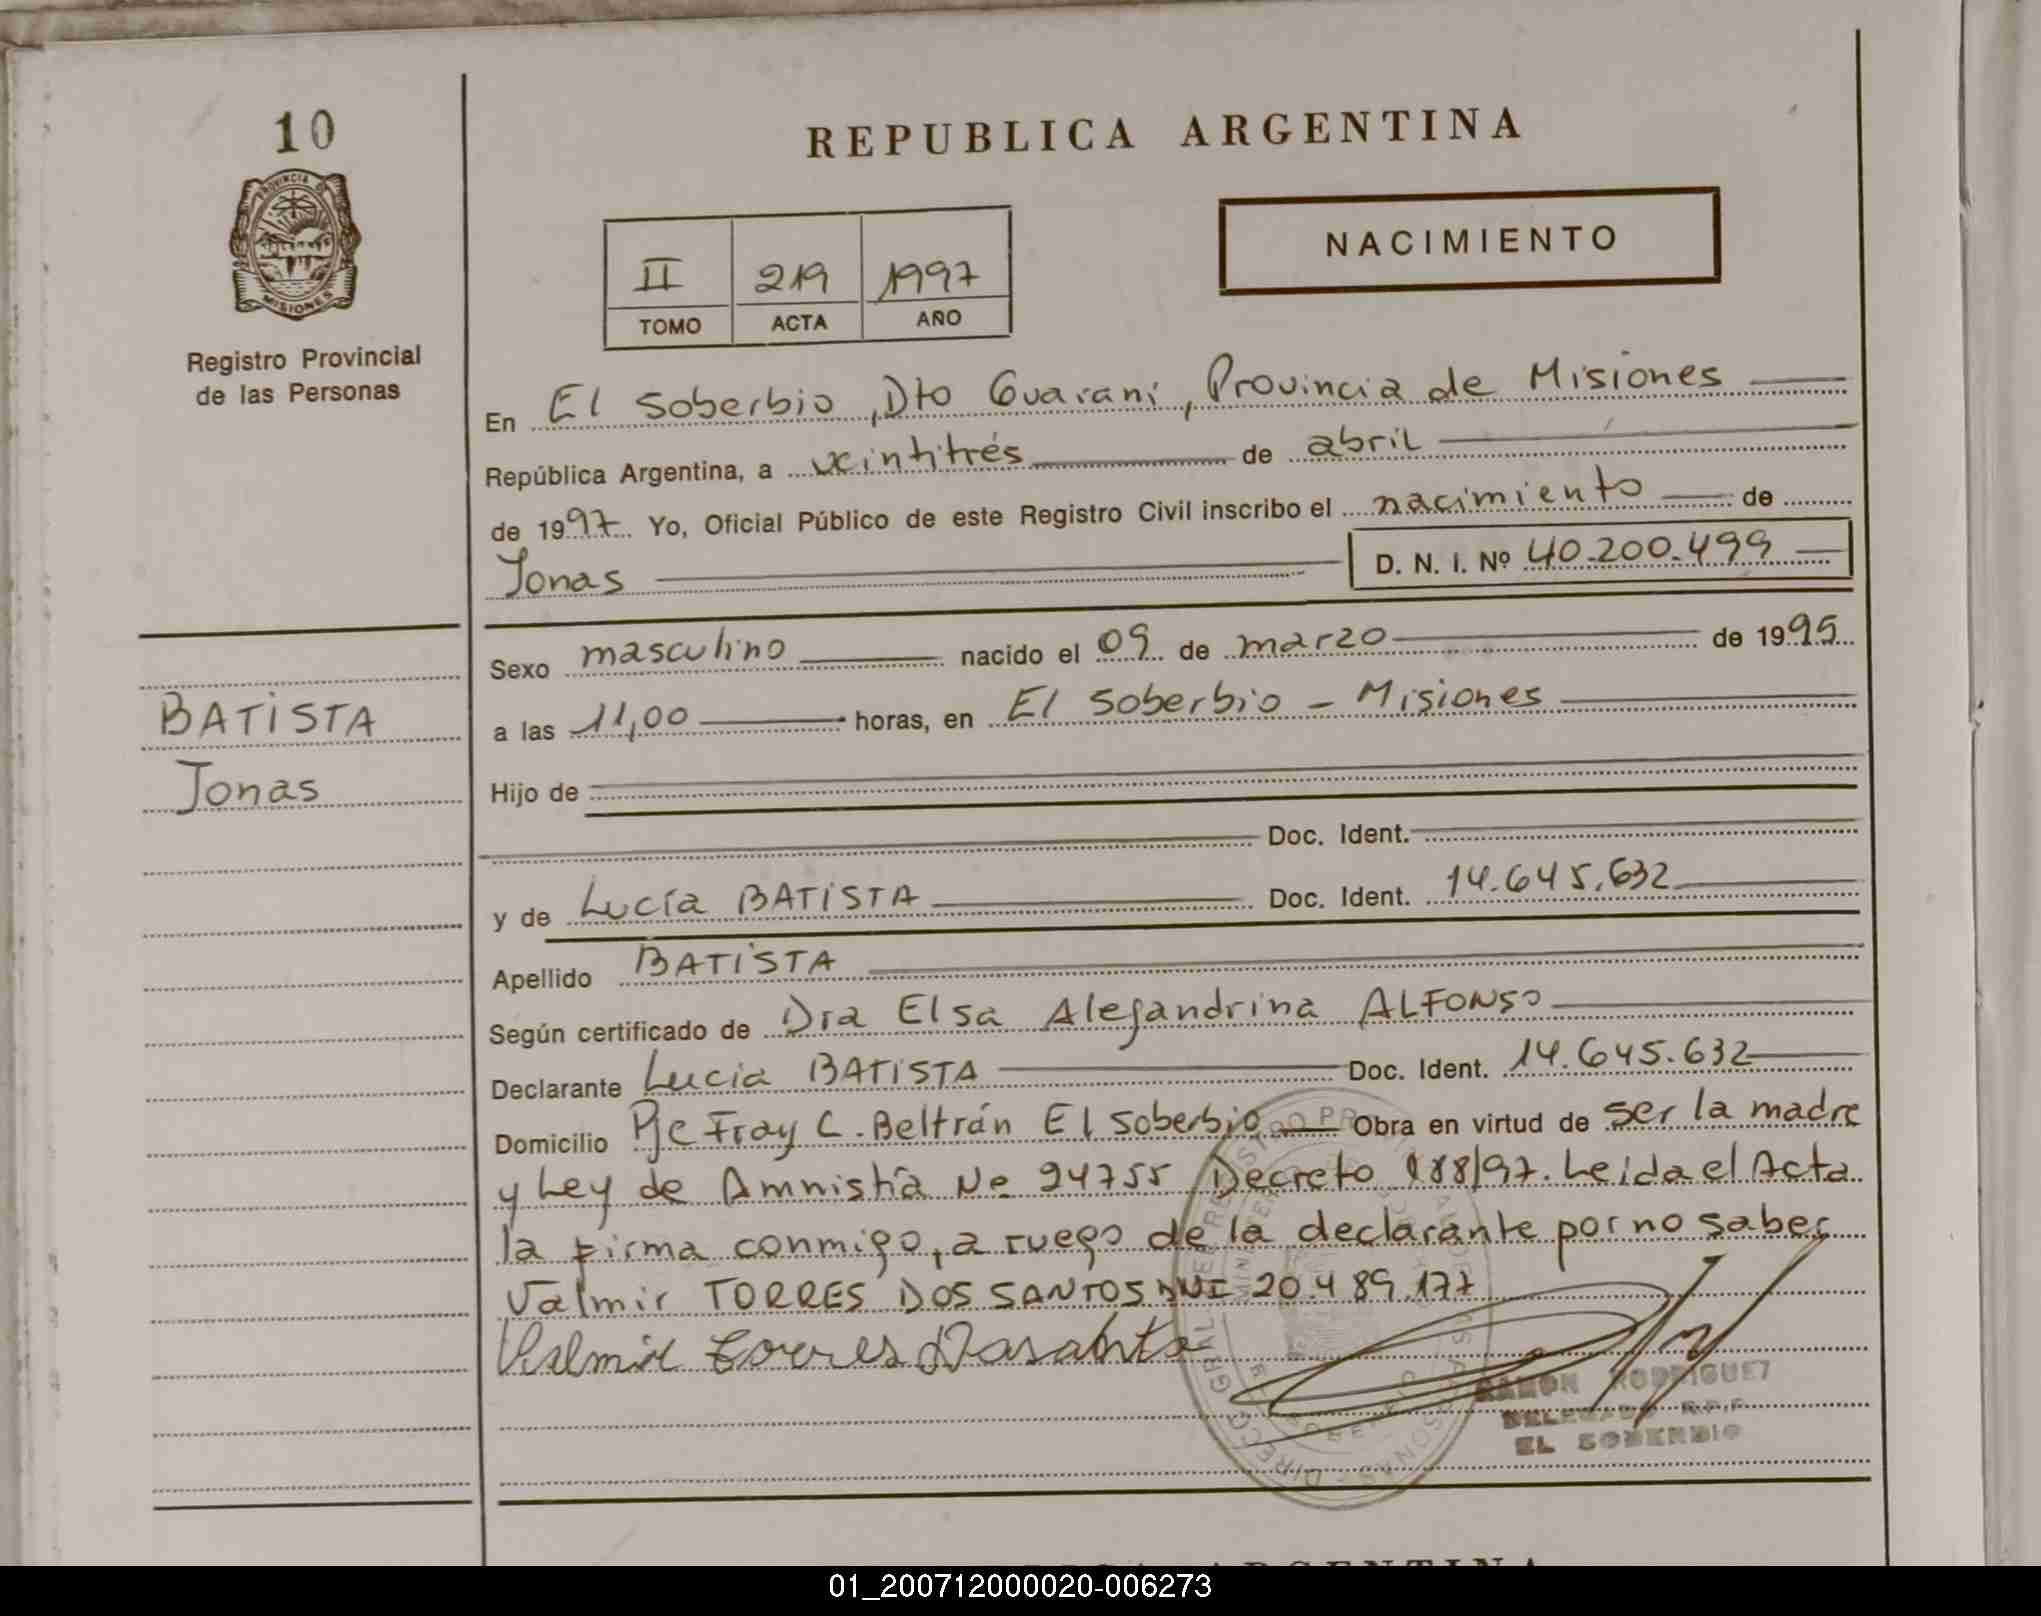 10
PROVINCIA DE
MISIONES
Registro Provincial
de las Personas
BATISTA
Jonas
REPUBLICA ARGENTINA
NACIMIENTO
II 219 1997
TOMO ACTA AÑO
En El Soberbio, Dto Guaraní, Provincia de Misiones
República Argentina, a veintitrés de abril
de 1997. Yo, Oficial Público de este Registro Civil inscribo el nacimiento de
Jonas D. N. I. Nº 40.200.499
Sexo masculino nacido el 09 de marzo de 1995
a las 11,00 horas, en El Soberbio - Misiones
Hijo de
Doc. Ident.
y de Lucía BATISTA Doc. Ident. 14.645.632
Apellido BATISTA
Según certificado de Dra Elsa Alejandrina ALFONSO
Declarante Lucia BATISTA Doc. Ident. 14.645.632
Domicilio Pje Fray C. Beltrán El Soberbio Obra en virtud de ser la madre
y Ley de Amnistía Nº 24755 Decreto 188/97. Leida el Acta
la firma conmigo, a ruego de la declarante por no saber
Valmir TORRES DOS SANTOS DNI 20.489.177
Valmir Torres
RAMON RODRIGUEZ
DELEGADO R.P.P.
EL SOBERBIO
01_200712000020-006273